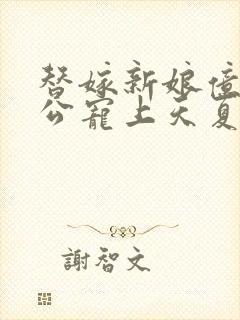 替嫁新娘億
公寵上天夏
謝智文